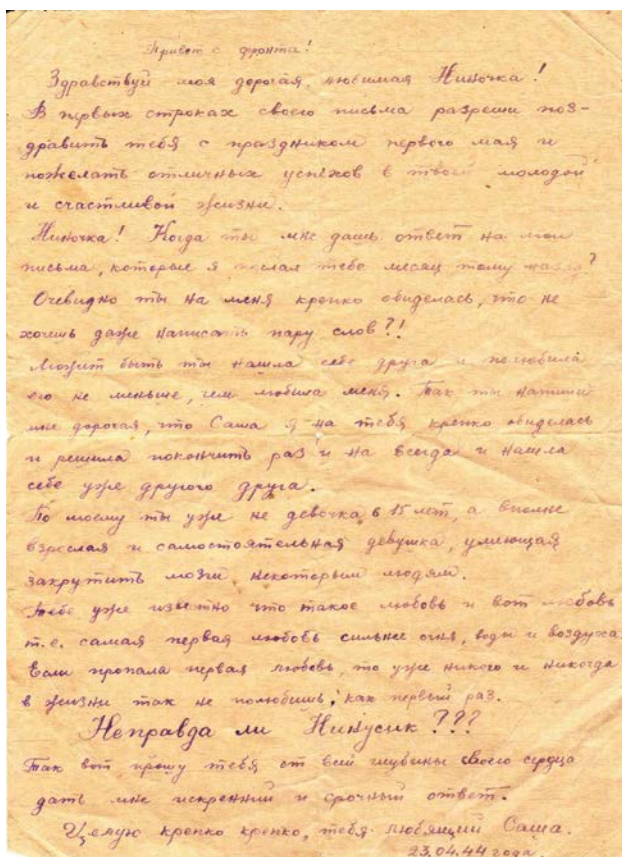 Привет с фронта!
Здравствуй моя дорогая, любимая Ниночка!
В первых строках своего письма разреши поз-
дравить тебя с праздником первого мая и
пожелать отличных успехов в твоей молодой
и счастливой жизни.
Ниночка! Когда ты мне дашь ответ на мои
письма, которые я послал тебе месяц тому назад?
Очевидно ты на меня крепко обиделась, что не
хочешь даже написать пару слов?!
Может быть ты нашла себе друга и полюбила
его не меньше, чем любила меня. Так ты напиши
мне дорогая, что Саша я на тебя крепко обиделась
и решила покончить раз и на всегда и нашла
себе уже другого друга.
По моему ты уже не девочка в 15 лет, а вполне
взрослая и самостоятельная девушка, умеющая
закрутить мозги некоторым людям.
Тебе уже известно что такое любовь и вот любовь
т.е. самая первая любовь сильнее огня, воды и воздуха.
Если пропала первая любовь, то уже никого и никогда
в жизни так не полюбишь, как первый раз.
Неправда ли Нинусик???
Так вот прошу тебя от всей глубины своего сердца
дать мне искренний и срочный ответ.
Целую крепко крепко, тебя любящий Саша.
23.04.44 года.